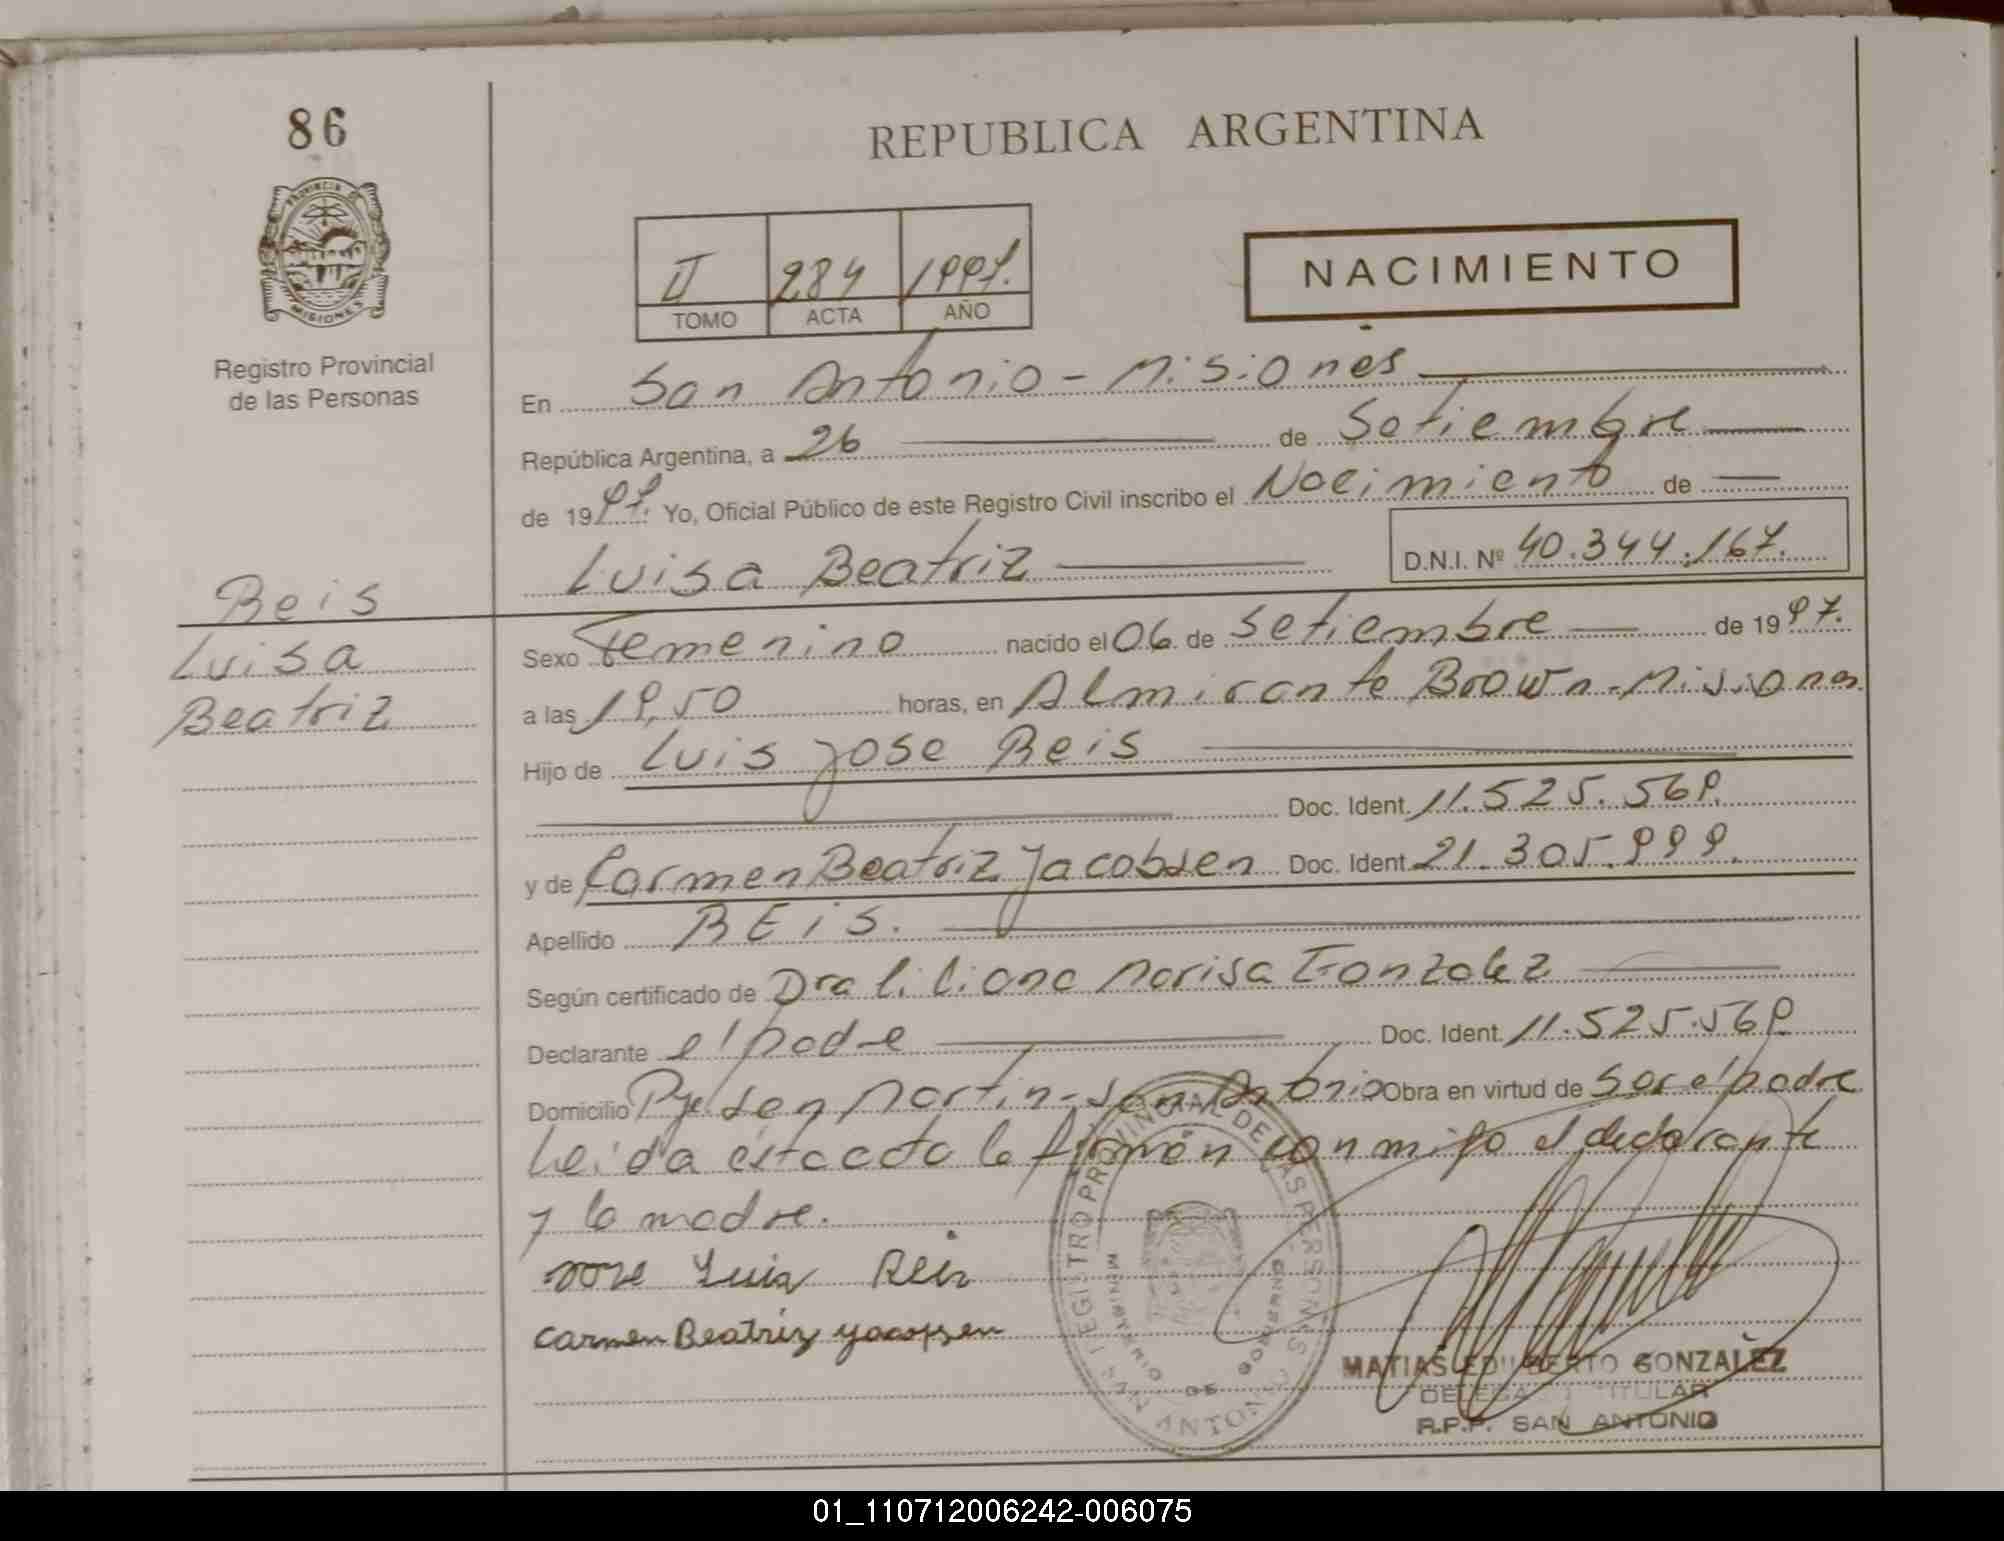 86
REPUBLICA ARGENTINA
PROVINCIA DE
MISIONES
Registro Provincial
de las Personas
II 284 1997.
TOMO ACTA AÑO
NACIMIENTO
En San Antonio - Misiones
República Argentina, a 26 de Setiembre
de 1997. Yo, Oficial Público de este Registro Civil inscribo el Nacimiento de
Luisa Beatriz D.N.I. Nº 40.344.167.
Beis
Luisa
Beatriz
Sexo Femenino nacido el 06 de Setiembre de 1997.
a las 19,50 horas, en Almirante Brown - Misiones
Hijo de Luis Jose Beis
Doc. Ident. 11.525.569.
y de Carmen Beatriz Jacobsen Doc. Ident. 21.305.999.
Apellido BEis.
Según certificado de Dra Liliana Marisa Gonzalez
Declarante el padre Doc. Ident. 11.525.569
Domicilio Pje. San Martin - San Antonio Obra en virtud de Ser el padre
Leida esta acta la firman conmigo el declarante
y la madre.
Jose Luis Reis
Carmen Beatriz yacopsen
REGISTRO PROVINCIAL DE LAS PERSONAS
MINISTERIO DE GOBIERNO
SAN ANTONIO
MATIAS EDILBERTO GONZALEZ
DELEGADO TITULAR
R.P.P. SAN ANTONIO
01_110712006242-006075